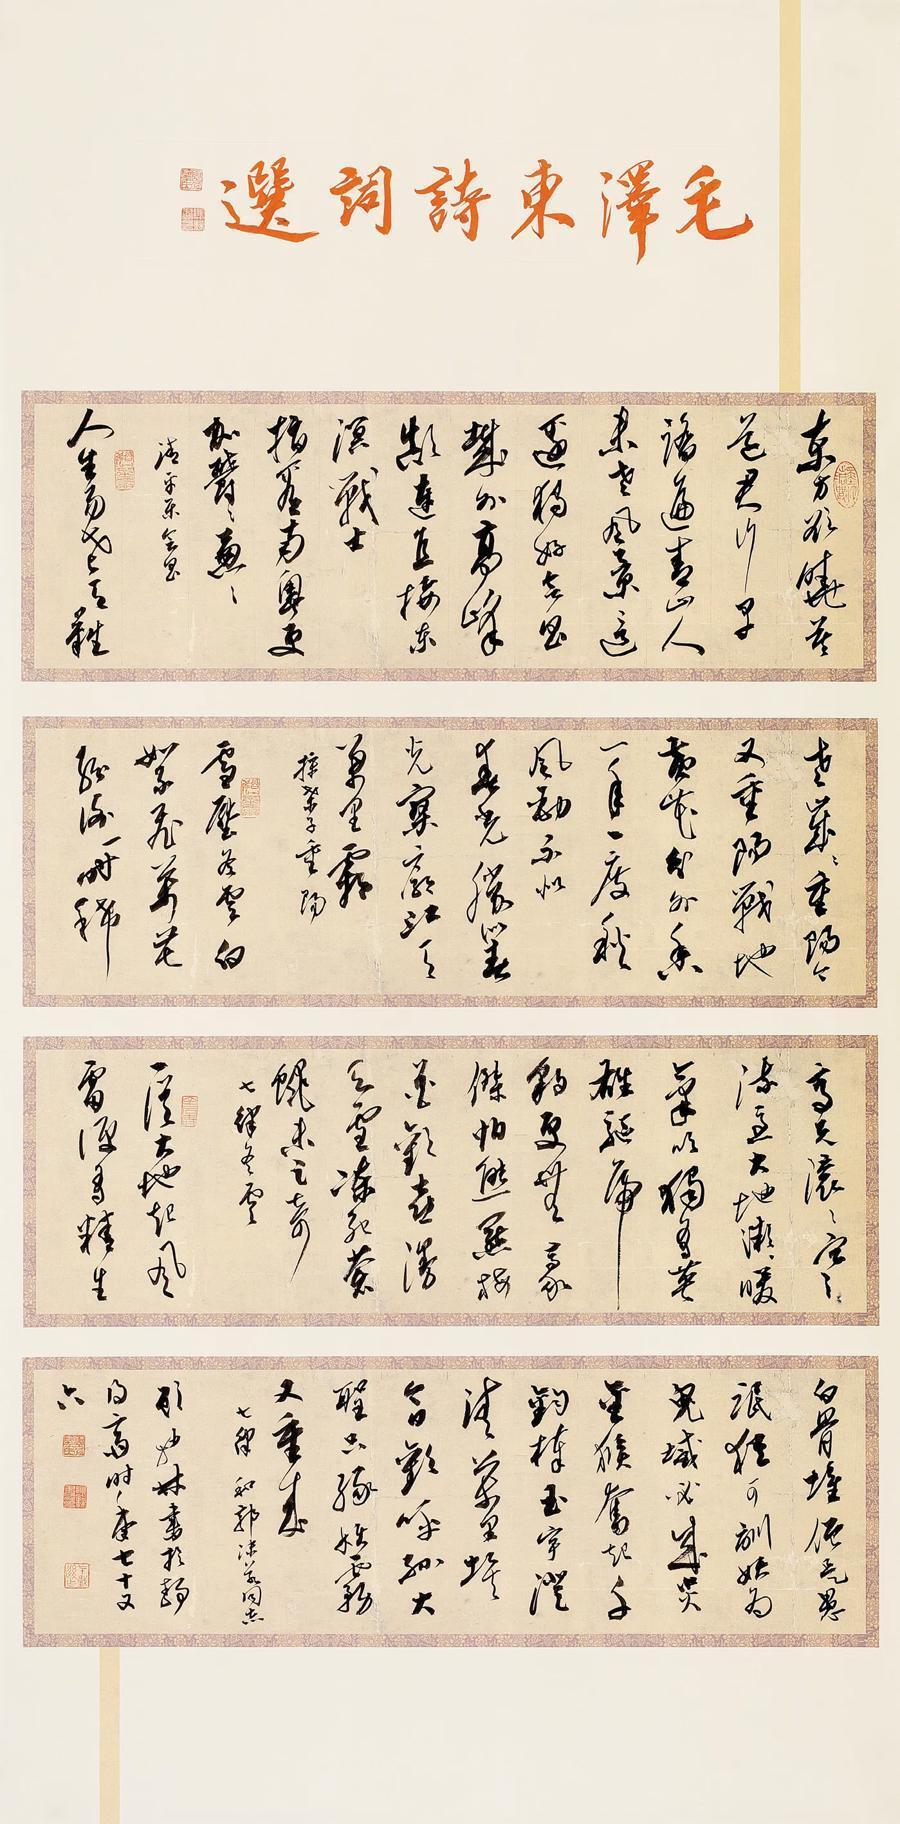 毛澤東詩詞選
東方欲曉莫
道君行早
踏遍青山人
未老風景這
邊獨好會昌
城外高峰
顛連直接東
溟戰士
指看南粵更
加鬱〻蔥〻
清平樂會昌
人生易老天難
老歲〻重陽今
又重陽戰地
黃花分外香
一年一度秋
風勁不似
春光勝似春
光寥廓江天
萬里霜
採桑子重陽
雪壓冬雲白
絮飛萬花
紛謝一時稀
高天滾〻寒
流急大地微〻暖
氣吹獨有英
雄驅虎
豹更無豪
傑怕熊羆梅
花歡喜漫
天雪凍死蒼
蠅未足奇
七律冬雲
一從大地起風
雷便有精生
白骨堆僧是愚
氓猶可訓妖為
鬼蜮必成災
金猴奮起千
鈞棒玉宇澄
清萬里埃
今日歡呼孫大
聖只緣妖霧
又重來
七律 和郭沫若同志
時年七十又
六